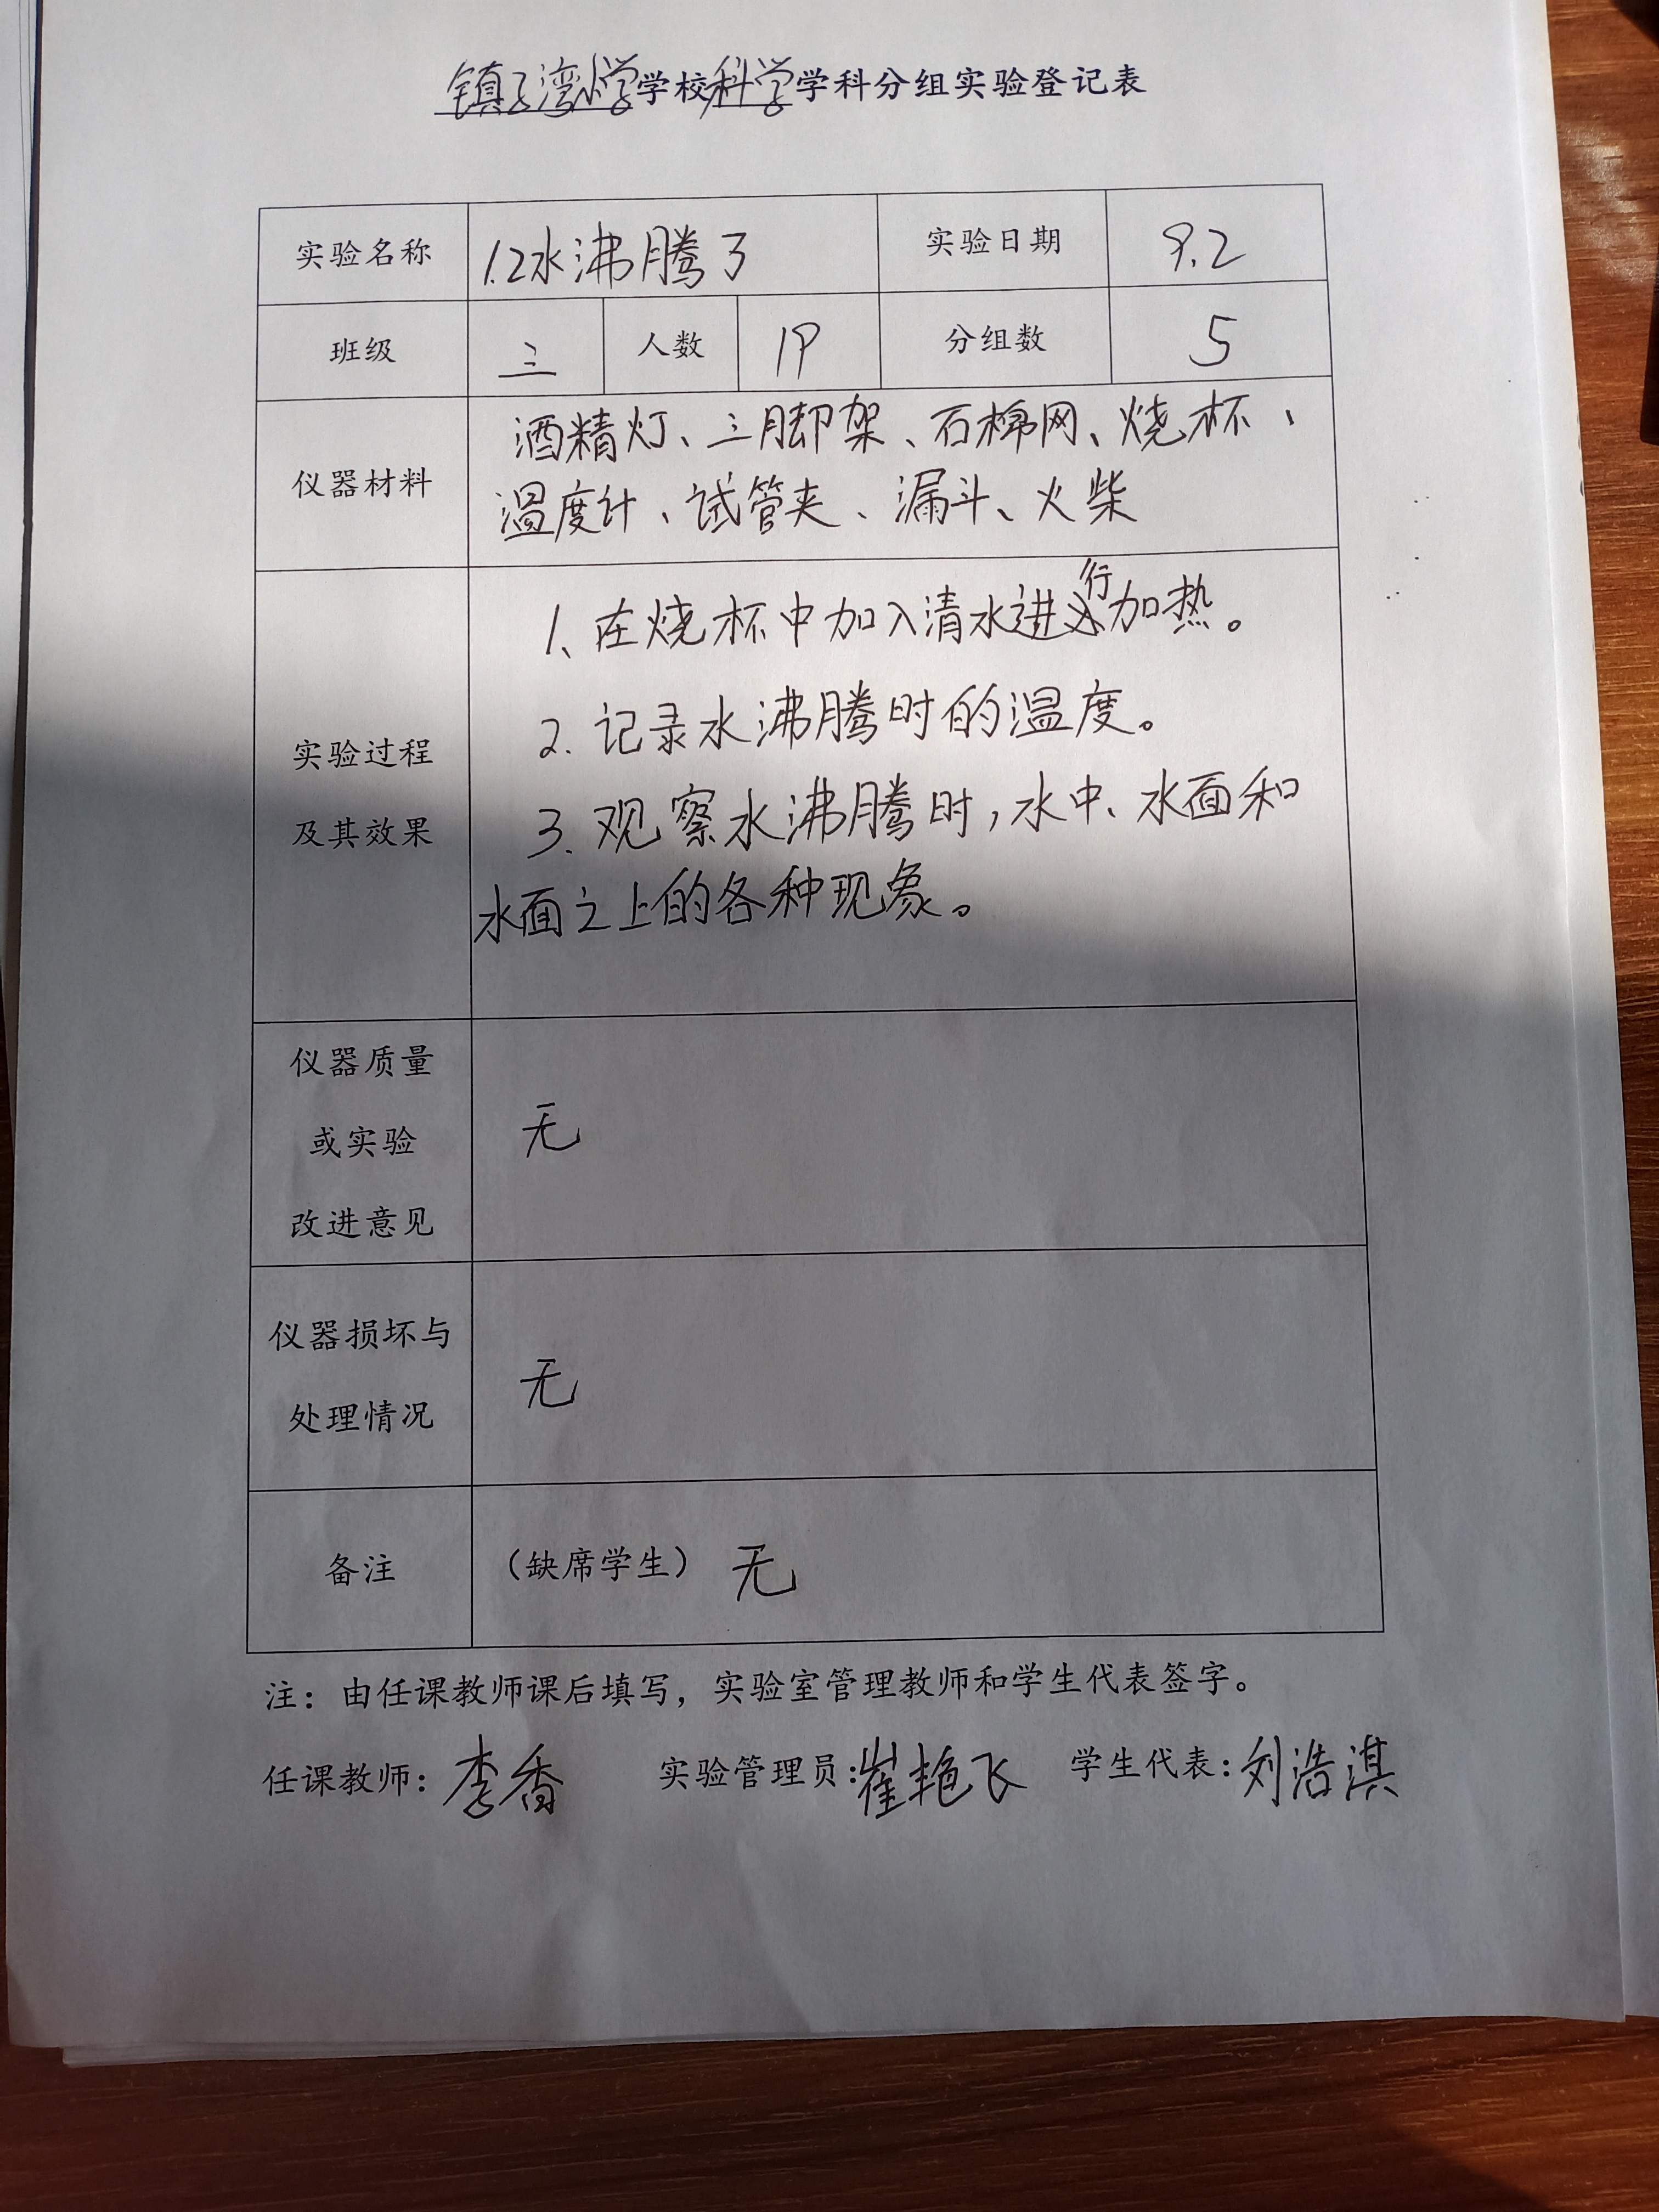 镇子湾小学学校科学学科分组实验登记表
实验名称 1.2水沸腾了 实验日期 9.2
班级 三 人数 19 分组数 5
仪器材料 酒精灯、三脚架、石棉网、烧杯、
温度计、试管夹、漏斗、火柴
实验过程
及其效果
1、在烧杯中加入清水进行加热。
2. 记录水沸腾时的温度。
3. 观察水沸腾时,水中、水面和
水面之上的各种现象。
仪器质量
或实验
改进意见
无
仪器损坏与
处理情况
无
备注 (缺席学生) 无
注:由任课教师课后填写,实验室管理教师和学生代表签字。
任课教师:李香 实验管理员:崔艳飞 学生代表:刘浩淇